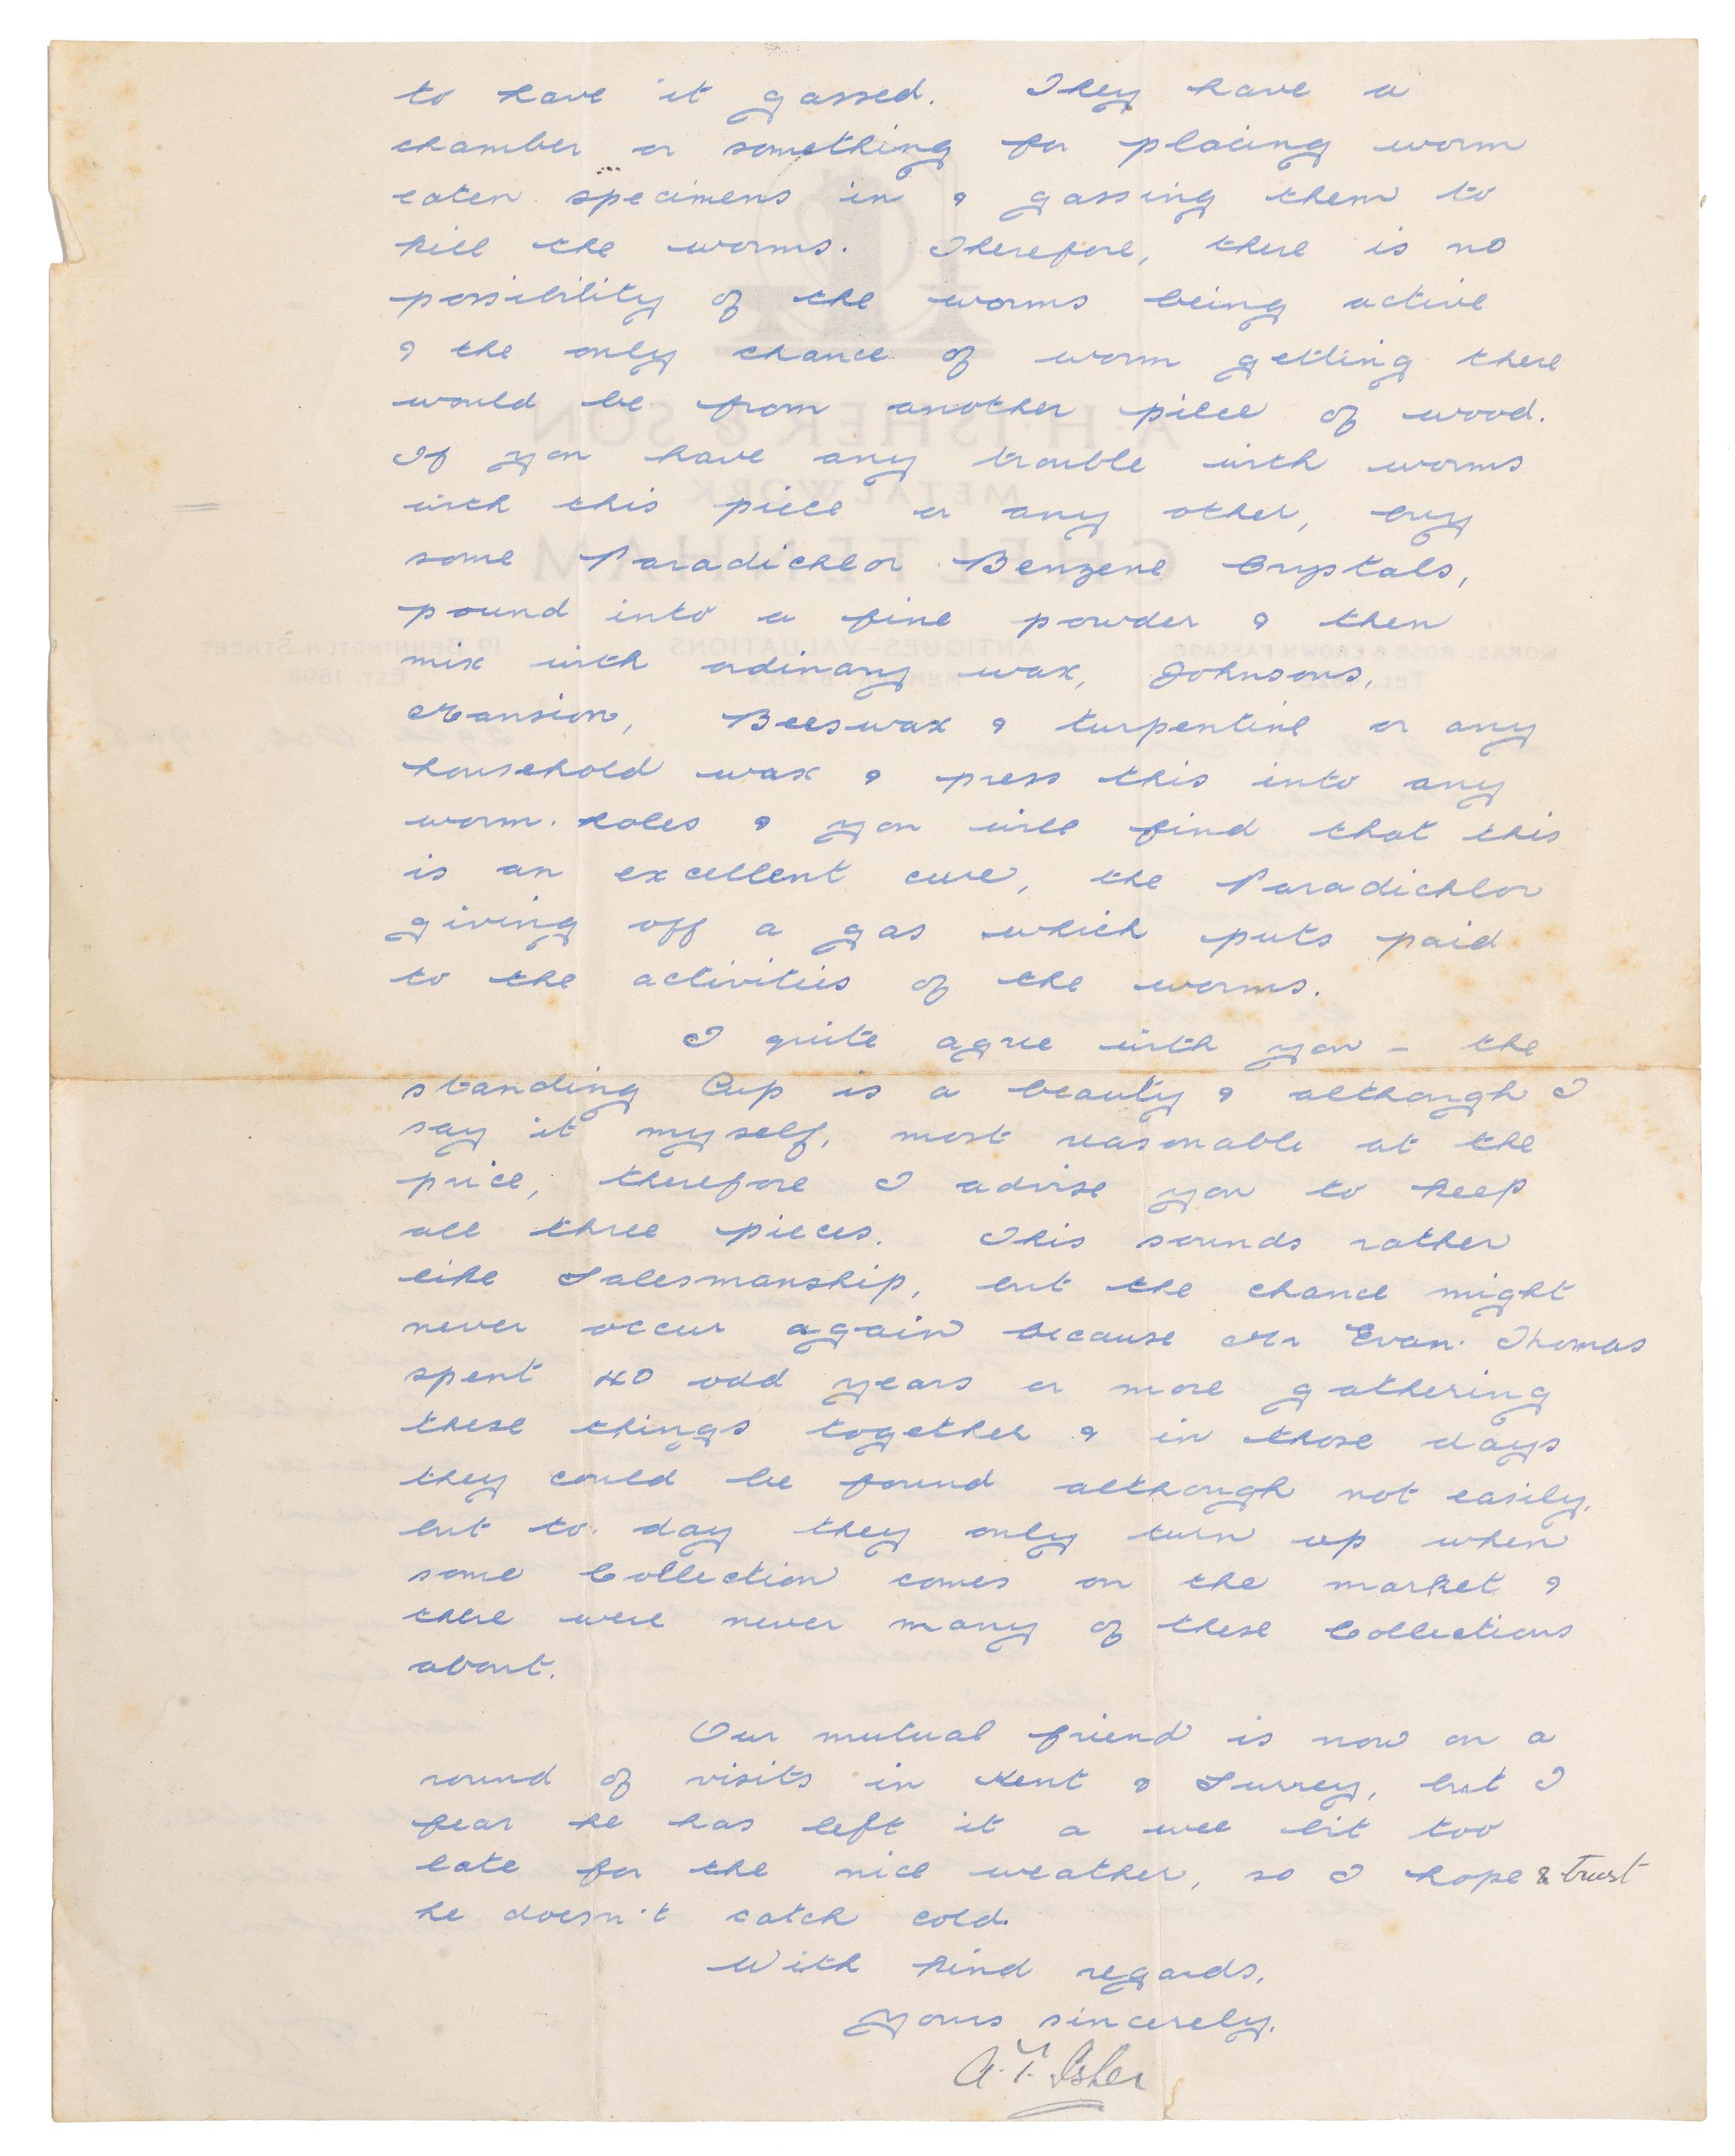 to have it gassed. They have a
chamber or something for placing worm
eaten specimens in & gassing them to
kill the worms. Therefore, there is no
possibility of the worms being active
& the only chance of worm getting there
would be from another piece of wood.
If you have any trouble with worms
with this piece or any other, buy
some Paradichlor Benzene Crystals,
pound into a fine powder & then
mix with ordinary wax, Johnsons,
Mansion, Beeswax & turpentine or any
household wax & press this into any
worm. holes & you will find that this
is an excellent cure, the Paradichlor
giving off a gas which puts paid
to the activities of the worms.
I quite agree with you – the
standing Cup is a beauty & although I
say it myself, most reasonable at the
price, therefore I advise you to keep
all three pieces. This sounds rather
like Salesmanship, but the chance might
never occur again because Mr Evan. Thomas
spent 40 odd years or more gathering
these things together & in those days
they could be found although not easily,
but to. day they only turn up when
some Collection comes on the market &
there were never many of these Collections
about.
Our mutual friend is now on a
round of visits in Kent & Surrey, but I
fear he has left it a wee bit too
late for the nice weather, so I hope & trust
he doesn't catch cold.
With kind regards,
Yours sincerely,
A.T. Isher
A·H·ISHER & SON
METALWORK
CHELTENHAM
WORKS: ROSE & CROWN PASSAGE
ANTIQUES—VALUATIONS
19 BENNINGTON STREET
EST. 1898